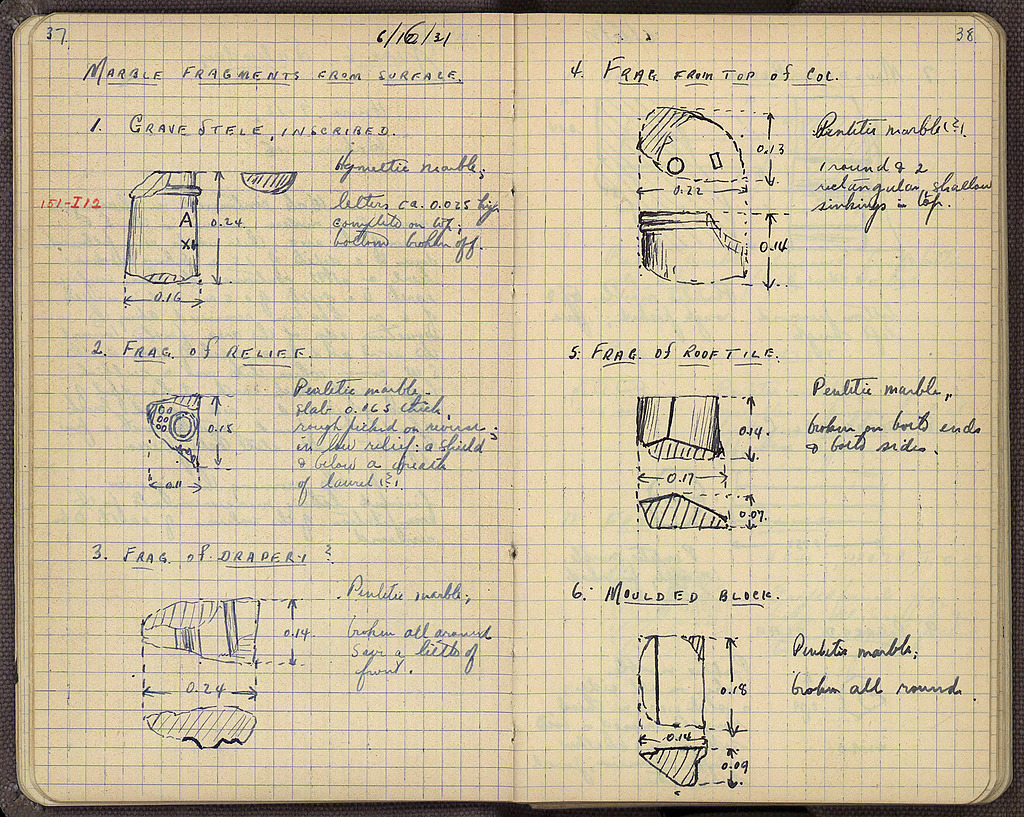 37
6/16/31
MARBLE FRAGMENTS FROM SURFACE.
1. GRAVE STELE, INSCRIBED.
Hymettic marble;
151-I12
letters ca. 0.025 high
complete on top;
bottom broken off.
A
X
0.24
0.16
2. FRAG. of RELIEF.
Pentelic marble.
slab 0.065 thick,
rough picked on reverse;
in low relief: a shield
& below a wreath
of laurel (?)
0.15
0.11
3. FRAG. of DRAPERY ?
Pentelic marble;
broken all around
save a little of
front.
0.14.
0.24
38
4. FRAG. FROM TOP of COL.
Pentelic marble (?).
1 round & 2
rectangular, shallow
sinkings in top.
0.13
0.22
0.14
5. FRAG. of ROOF TILE.
Pentelic marble,
broken on both ends
& both sides.
0.14.
0.17
0.07.
6. MOULDED BLOCK.
Pentelic marble;
broken all round.
0.18
0.14
0.09